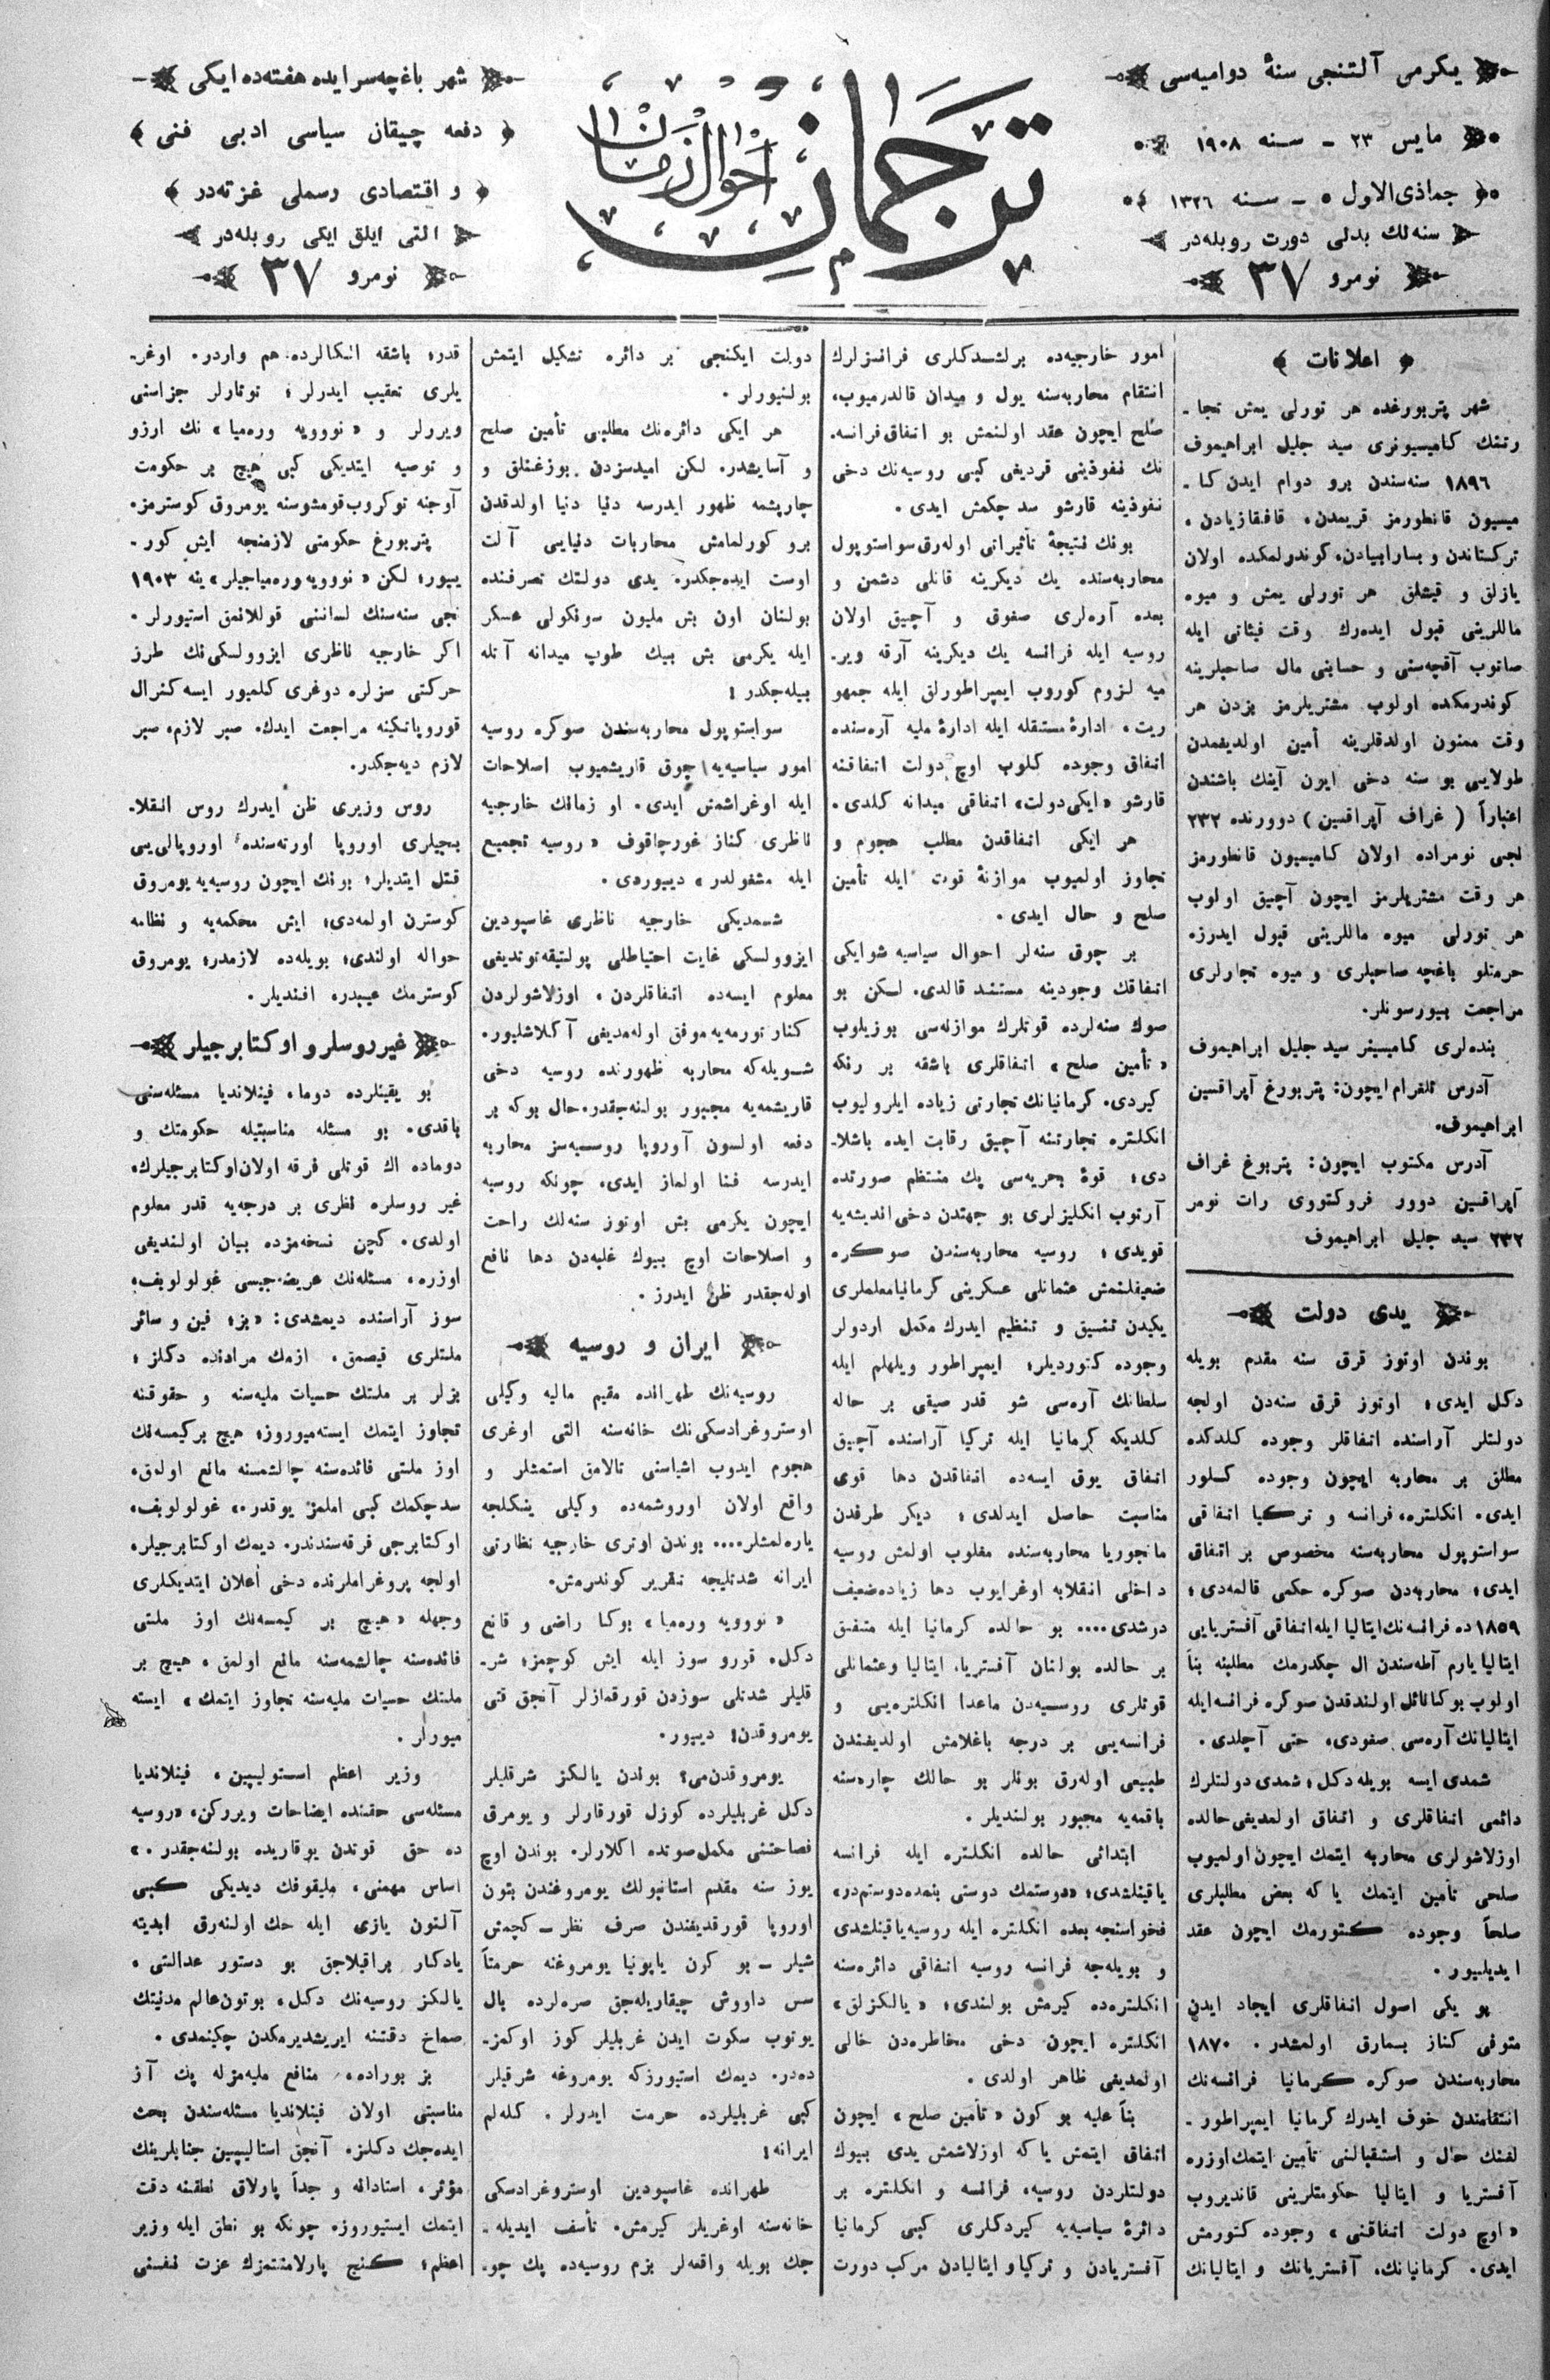 يكرمی آلتنجی سنۀ دواميه‌سی
مايس ٢٣ ــ سنه ١٩٠٨
جماذی‌الاول ٥ ــ سنه ١٣٢٦
سنه‌لك بدلی دورت روبله‌در
نومرو ٣٧
ترجمان
احوال زمان
شهر باغچه‌سرايده هفته‌ده ايكی
دفعه چيقان سياسی ادبی فنی
و اقتصادی رسملی غزته‌در
التی ايلق ايكی روبله‌در
نومرو ٣٧
اعلانات
شهر پتربورغده هر تورلی يمش تجا ـ
رتنك كاميسيونری سيد جليل ابراهيموف
١٨٩٦ سنه‌سندن برو دوام ايدن كا ـ
ميسيون قانطورمز قريمدن، قافقازيادن،
تركستاندن و بسارابيادن، كوندولمكده اولان
يازلق و قيشلق هر تورلی يمش و ميوه
ماللرينی قبول ايده‌رك وقت فيئاتی ايله
صاتوب آقچه‌سنی و حسابنی مال صاحبلرينه
كوندرمكده اولوب مشتريلرمز بزدن هر
وقت ممنون اولدقلرينه أمين اولديغمدن
طولايی بو سنه دخی ايرن آينك باشندن
اعتباراً ( غراف آپراقسين ) دوورنده ٢٣٢
نجی نومراده اولان كاميسيون قانطورمز
هر وقت مشتريلرمز ايچون آچيق اولوب
هر تورلی ميوه ماللرينی قبول ايدرز،
حرمتلو باغچه صاحبلری و ميوه تجارلری
مراجعت بيورسونلر.
بنده‌لری كاميسينر سيد جليل ابراهيموف
آدرس تلغرام ايچون: پتربورغ آپراقسين
ابراهيموف.
آدرس مكتوب ايچون: پتربوغ غراف
آپراقسين دوور فروكتووی رات نومر
٢٣٢ سيد جليل ابراهيموف
يدی دولت
بوندن اوتوز قرق سنه مقدم بويله
دكل ايدی؛ اوتوز قرق سنه‌دن اولجه
دولتلر آراسنده اتفاقلر وجوده كلدكده
مطلق بر محاربه ايچون وجوده كلور
ايدی. انكلتره، فرانسه و تركيا اتفاقی
سواستوپول محاربه‌سنه مخصوص بر اتفاق
ايدی؛ محاربه‌دن صوكره حكمی قالمه‌دی؛
١٨٥٩ ده فرانسه‌نك ايتاليا ايله اتفاقی آفستريايی
ايتاليا يارم آطه‌سندن ال چكدرمك مطلبنه بناً
اولوب بوكا نائل اولندقدن صوكره فرانسه ايله
ايتاليانك آره‌سی صغودی، حتی آچلدی.
شمدی ايسه بويله دكل؛ شمدی دولتلرك
دائمی اتفاقلری و اتفاق اولمديغی حالده
اوزلاشولری محاربه ايتمك ايچون اولميوب
صلحی تأمين ايتمك يا كه بعض مطلبلری
صلحاً وجوده كتورمك ايچون عقد
ايديليور.
بو يكی اصول اتفاقلری ايجاد ايدن
متوفی كناز بسمارق اولمشدر. ١٨٧٠
محاربه‌سندن صوكره كرمانيا فرانسه‌نك
انتقامندن خوف ايدرك كرمانيا ايمپراطور ـ
لغنك حال و استقبالنی تأمين ايتمك اوزره
آفستريا و ايتاليا حكومتلرينی قانديروب
« اوچ دولت اتفاقنی » وجوده كتورمش
ايدی. كرمانيانك، آفستريانك و ايتاليانك
امور خارجيه‌ده برلشدكلری فرانسزلرك
انتقام محاربه‌سنه يول و ميدان قالدرميوب،
صلح ايچون عقد اولنمش بو اتفاق فرانسه‌ـ
نك نفوذينی قرديغی كبی روسيه‌نك دخی
نفوذينه قارشو سد چكمش ايدی.
بونك نتيجۀ تأثيراتی اوله‌رق سواستوپول
محاربه‌سنده يك ديكرينه قانلی دشمن و
بعده آره‌لری صغوق و آچيق اولان
روسيه ايله فرانسه يك ديكرينه آرقه ويرـ
ميه لزوم كوروب ايمپراطورلق ايله جمهو
ريت، ادارۀ مستقله ايله ادارۀ مليه آره‌سنده
اتفاق وجوده كلوب اوچ دولت اتفاقنه
قارشو «ايكی دولت» اتفاقی ميدانه كلدی.
هر ايكی اتفاقدن مطلب هجوم و
تجاوز اولميوب موازنۀ قوت ايله تأمين
صلح و حال ايدی.
بر چوق سنه‌لر احوال سياسيه شو ايكی
اتفاقك وجودينه مستند قالدی. لكن بو
صوك سنه‌لرده قوتلرك موازنه‌سی بوزيلوب
« تأمين صلح » اتفاقلری باشقه بر رنكه
كيردی. كرمانيانك تجارتی زياده ايلروليوب
انكلتره تجارتنه آچيق رقابت ايده باشلاـ
دی؛ قوۀ بحريه‌سی پك منتظم صورتده
آرتوب انكليزلری بو جهتدن دخی انديشه‌يه
قويدی؛ روسيه محاربه‌سندن صوكره
ضعيفلنمش عثمانلی عسكرينی كرمانيا معلملری
يكيدن تنسيق و تنظيم ايدرك مكمل اردولر
وجوده كتورديلر؛ ايمپراطور ويلهلم ايله
سلطانك آره‌سی شو قدر صيقی بر حاله
كلديكه كرمانيا ايله تركيا آراسنده آچيق
اتفاق يوق ايسه‌ده اتفاقدن دها قوی
مناسبت حاصل ايدلدی؛ ديكر طرفدن
مانجوريا محاربه‌سنده مغلوب اولمش روسيه
داخلی انقلابه اوغرايوب دها زياده ضعيف
دوشدی.... بو حالده كرمانيا ايله متفق
بر حالده بولنان آفستريا، ايتاليا و عثمانلی
قوتلری روسيه‌دن ماعدا انكلتره‌يی و
فرانسه‌يی بر درجه باغلامش اولديغندن
طبيعی اوله‌رق بونلر بو حالك چاره‌سنه
باقمه‌يه مجبور بولنديلر.
ابتدائی حالده انكلتره ايله فرانسه
ياقينلشدی؛ «دوستمك دوستی بنمده دوستمدر»
فحواسنجه بعده انكلتره ايله روسيه ياقينلشدی
و بويله‌جه فرانسه روسيه اتفاقی دائره‌سنه
انكلتره‌ده كيرمش بولندی؛ « يالكزلق »
انكلتره ايچون دخی مخاطره‌دن خالی
اولمديغی ظاهر اولدی.
بناً عليه بو كون « تأمين صلح » ايچون
اتفاق ايتمش يا كه اوزلاشمش يدی بيوك
دولتلردن روسيه، فرانسه و انكلتره بر
دائرۀ سياسيه‌يه كيردكلری كبی كرمانيا
آفستريادن و تركيا و ايتاليادن مركب دورت
دولت ايكنجی بر دائره تشكيل ايتمش
بولنيورلر.
هر ايكی دائره‌نك مطلبی تأمين صلح
و آسايشدر. لكن اميدسزدن بوزغنلق و
چارپشمه ظهور ايدرسه دنيا دنيا اولدقدن
برو كورلمامش محاربات دنيايی آلت
اوست ايده‌جكدر. يدی دولتك تصرفنده
بولنان اون بش مليون سونكولی عسكر
ايله يكرمی بش بيك طوپ ميدانه آتله
بيله‌جكدر!
سواستوپول محاربه‌سندن صوكره روسيه
امور سياسيه‌يه چوق قاريشميوب اصلاحات
ايله اوغراشمش ايدی. او زمانك خارجيه
ناظری كناز غورچاقوف « روسيه تجميع
ايله مشغولدر » ديیوردی.
شمديكی خارجيه ناظری غاسپودين
ايزوولسكی غايت احتياطلی پولتيقه توتديغی
معلوم ايسه‌ده اتفاقلردن، اوزلاشولردن
كنار تورمه‌يه موفق اوله‌مديغی آكلاشليور.
شويله‌كه محاربه ظهورنده روسيه دخی
قاريشمه‌يه مجبور بولنه‌جقدر. حال بوكه بر
دفعه اولسون آوروپا روسيه‌سز محاربه
ايدرسه فنا اولماز ايدی. چونكه روسيه
ايچون يكرمی بش اوتوز سنه‌لك راحت
و اصلاحات اوچ بيوك غلبه‌دن دها نافع
اوله‌جقدر ظن ايدرز.
ايران و روسيه
روسيه‌نك طهرانده مقيم ماليه وكيلی
اوستروغرادسكی‌نك خانه‌سنه التی اوغری
هجوم ايدوب اشياسنی تالامق استمشلر و
واقع اولان اوروشمه‌ده وكيلی ينكلجه
ياره‌لمشلر.... بوندن اوتری خارجيه نظارتی
ايرانه شدتليجه تقرير كوندرمش.
« نوويه وره‌ميا » بوكا راضی و قانع
دكل، قورو سوز ايله ايش كوچمز؛ شرـ
قليلر شدتلی سوزدن قورقمازلر آنجق قتی
يومروقدن! ديیور.
يومروقدن‌می؟ بوندن يالكز شرقليلر
دكل غربليلرده كوزل قورقارلر و يومرق
فصاحتنی مكمل صوتده اكلارلر. بوندن اوچ
يوز سنه مقدم استانبولك يومروغندن بتون
اوروپا قورقديغندن صرف نظر ــ كچمش
شيلر ــ بو كون ياپونيا يومروغنه حرمتاً
سس داووش چيقاريله‌جق صره‌لرده بال
يوتوب سكوت ايدن غربليلر كوز اوكمزـ
ده‌در. ديمك استيورزكه يومروغه شرقيلر
كبی غربليلرده حرمت ايدرلر. كله‌لم
ايرانه!
طهرانده غاسپودين اوستروغرادسكی
خانه‌سنه اوغريلر كيرمش. تأسف ايديله ـ
جك بويله واقعه‌لر بزم روسيه‌ده پك چوـ
قدر؛ باشقه الكالرده هم واردر. اوغرـ
يلری تعقيب ايدرلر؛ توتارلر جزاسنی
ويررلر و « نوويه وره‌ميا » نك ارزو
و توصيه ايتديكی كبی هيچ بر حكومت
آوجنه توكروب قومشوسنه يومروق كوسترمز.
پتربورغ حكومتی لازمنجه ايش كورـ
يیور؛ لكن « نوويه وره‌مياجيلر » ينه ١٩٠٣
نجی سنه‌سنك لسانی قوللانمق استيورلر.
اكر خارجيه ناظری ايزوولسكی‌نك طرز
حركتی سزلره دوغری كلميور ايسه كنرال
قوروپاتكينه مراجعت ايدك. صبر لازم، صبر
لازم ديه‌جكدر.
روس وزيری ظن ايدرك روس انقلاـ
بجيلری اوروپا اورته‌سنده اوروپالی‌يی
قتل ايتديلر؛ بونك ايچون روسيه‌يه يومروق
كوسترن اولمه‌دی؛ ايش محكمه‌يه و نظامه
حواله اولندی؛ بويله‌ده لازمدر؛ يومروق
كوسترمك عيبدر، افنديلر.
غير روسلر و اوكتابرجيلر
بو يقينلرده دوما، فينلانديا مسئله‌سنی
باقدی. بو مسئله مناسبتيله حكومتك و
دوماده اك قوتلی فرقه اولان اوكتابرجيلرك
غير روسلره نظری بر درجه‌يه قدر معلوم
اولدی. كچن نسخه‌مزده بيان اولنديغی
اوزره، مسئله‌نك عريضه‌جيسی غولولوبف،
سوز آراسنده ديمشدی: « بز؛ فين و سائر
ملتلری قيصمق، ازمك مرادنده دكلز؛
بزلر بر ملتك حسيات مليه‌سنه و حقوقنه
تجاوز ايتمك ايسته‌ميوروز؛ هيچ بر كيمسه‌نك
اوز ملتی فائده‌سنه چالشمسنه مانع اولمق،
سد چكمك كبی املمز يوقدر.» غولولوبف،
اوكتابرجی فرقه‌سندندر. ديمك اوكتابرجيلر،
اولجه پروغراملرنده دخی أعلان ايتديكلری
وجهله « هيچ بر كيمسه‌نك اوز ملتی
فائده‌سنه چالشمه‌سنه مانع اولمق، هيچ بر
ملتك حسيات مليه‌سنه تجاوز ايتمك » ايسته
ميورلر.
وزير اعظم استوليپين، فينلانديا
مسئله‌سی حقنده ايضاحات ويرركن، «روسيه
ده حق قوتدن يوقاريده بولنه‌جقدر.»
اساس مهمنی، مليقوفك ديديكی كبی
آلتون يازی ايله حك اولنه‌رق ابديته
يادكار براقيلاجق بو دستور عدالتی،
يالكز روسيه‌نك دكل، بوتون عالم مدنيتك
صماخ دقتنه ايريشديرمكدن چكينمدی.
بز بوراده، منافع مليه‌مزله پك آز
مناسبتی اولان فينلانديا مسئله‌سندن بحث
ايده‌جك دكلز. آنجق استاليپين جنابلرينك
مؤثر، استادانه و جداً پارلاق نطقنه دقت
ايتمك ايستيوروز. چونكه بو نطق ايله وزير
اعظم؛ كنج پارلامنتمزك عزت نفسنی